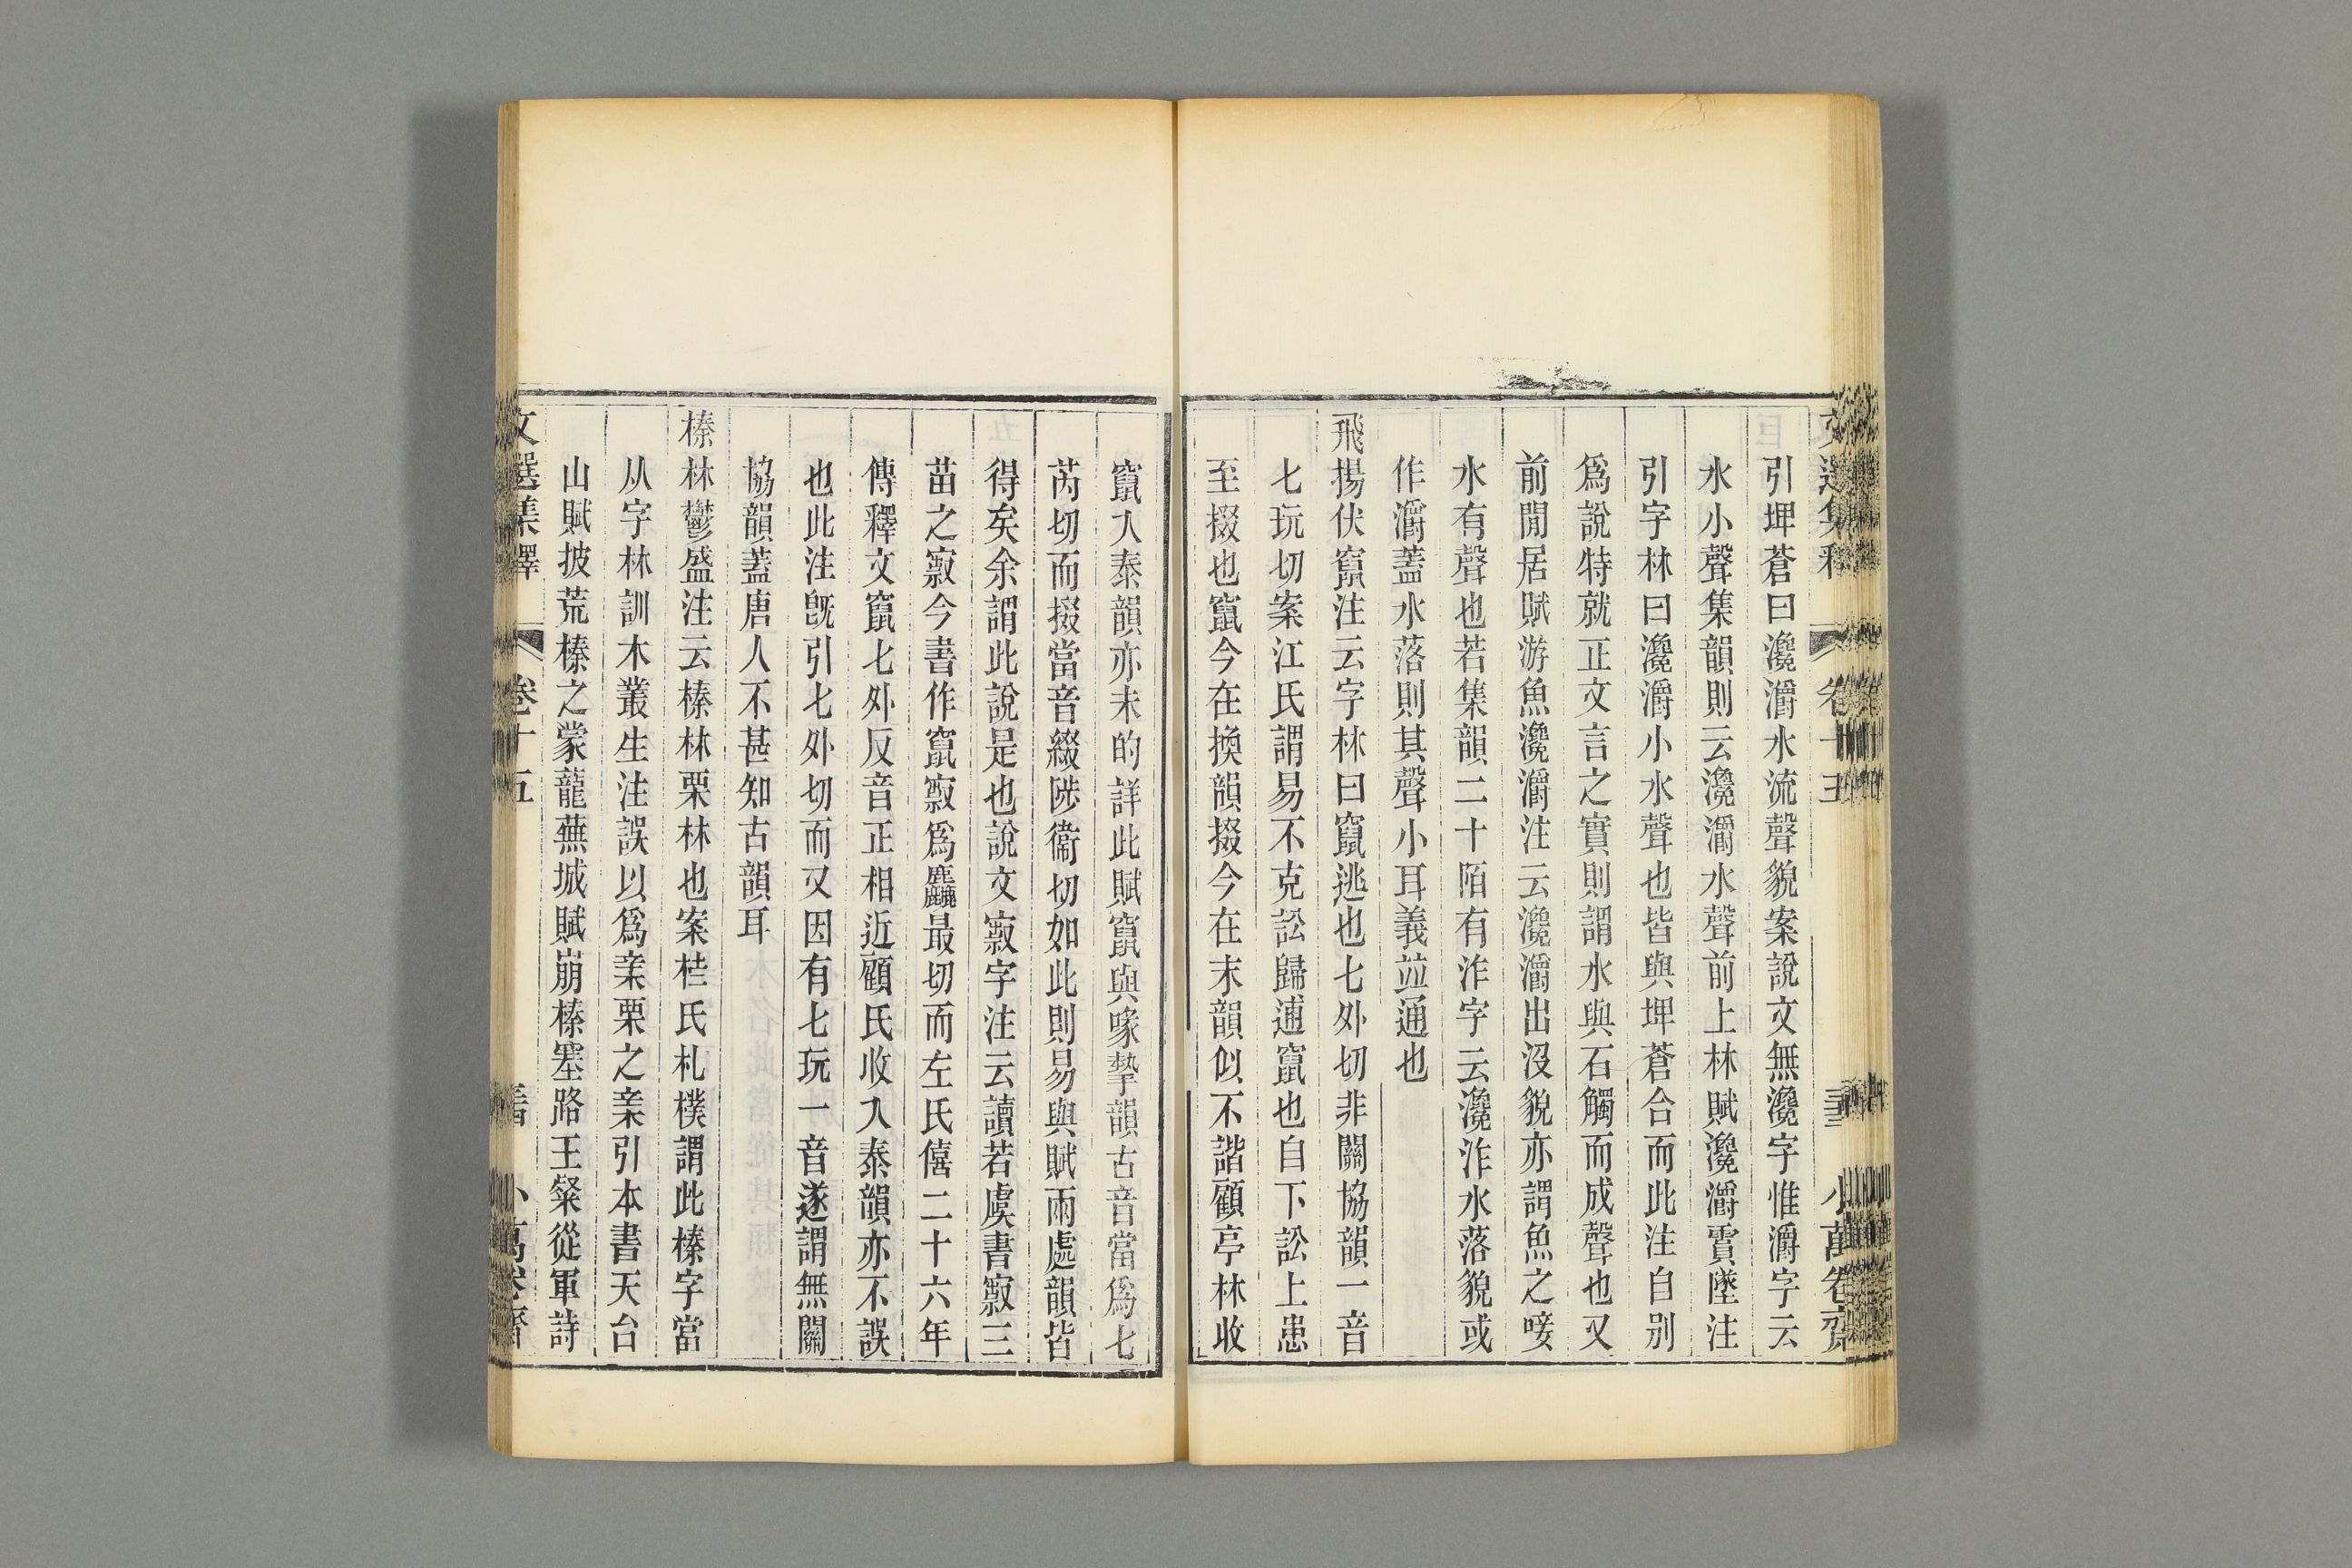 引埤蒼曰瀺灂水流聲貌案說文無瀺字惟灂字云
水小聲集韻則云瀺灂水聲前上林賦瀺灂霣墜注
引字林曰瀺灂小水聲也皆與埤蒼合而此注自别
爲說特就正文言之實則謂水與石觸而成聲也又
前閒居賦游魚瀺灂注云瀺灂出沒貌亦謂魚之唼
水有聲也若集韻二十陌有泎字云瀺泎水落貌或
作灂蓋水落則其聲小耳義竝通也
飛揚伏竄注云字林曰竄逃也七外切非關協韻一音
七玩切案江氏謂易不克訟歸逋竄也自下訟上患
至掇也竄今在換韻掇今在末韻似不諧顧亭林收
竄入泰韻亦未的詳此賦竄與喙摯韻古音當爲七
芮切而掇當音綴陟衞切如此則易與賦兩處韻皆
得矣余謂此說是也說文㝮字注云讀若虞書㝮三
苗之㝮今書作竄㝮爲麤最切而左氏僖二十六年
傳釋文竄七外反音正相近顧氏收入泰韻亦不誤
也此注旣引七外切而又因有七玩一音遂謂無關
協韻蓋唐人不甚知古韻耳
榛林鬱盛注云榛林栗林也案桂氏札樸謂此榛字當
从字林訓木叢生注誤以爲亲栗之亲引本書天台
山賦披荒榛之蒙蘢蕪城賦崩榛塞路王粲從軍詩
文選集釋 卷十五 小萬卷齋